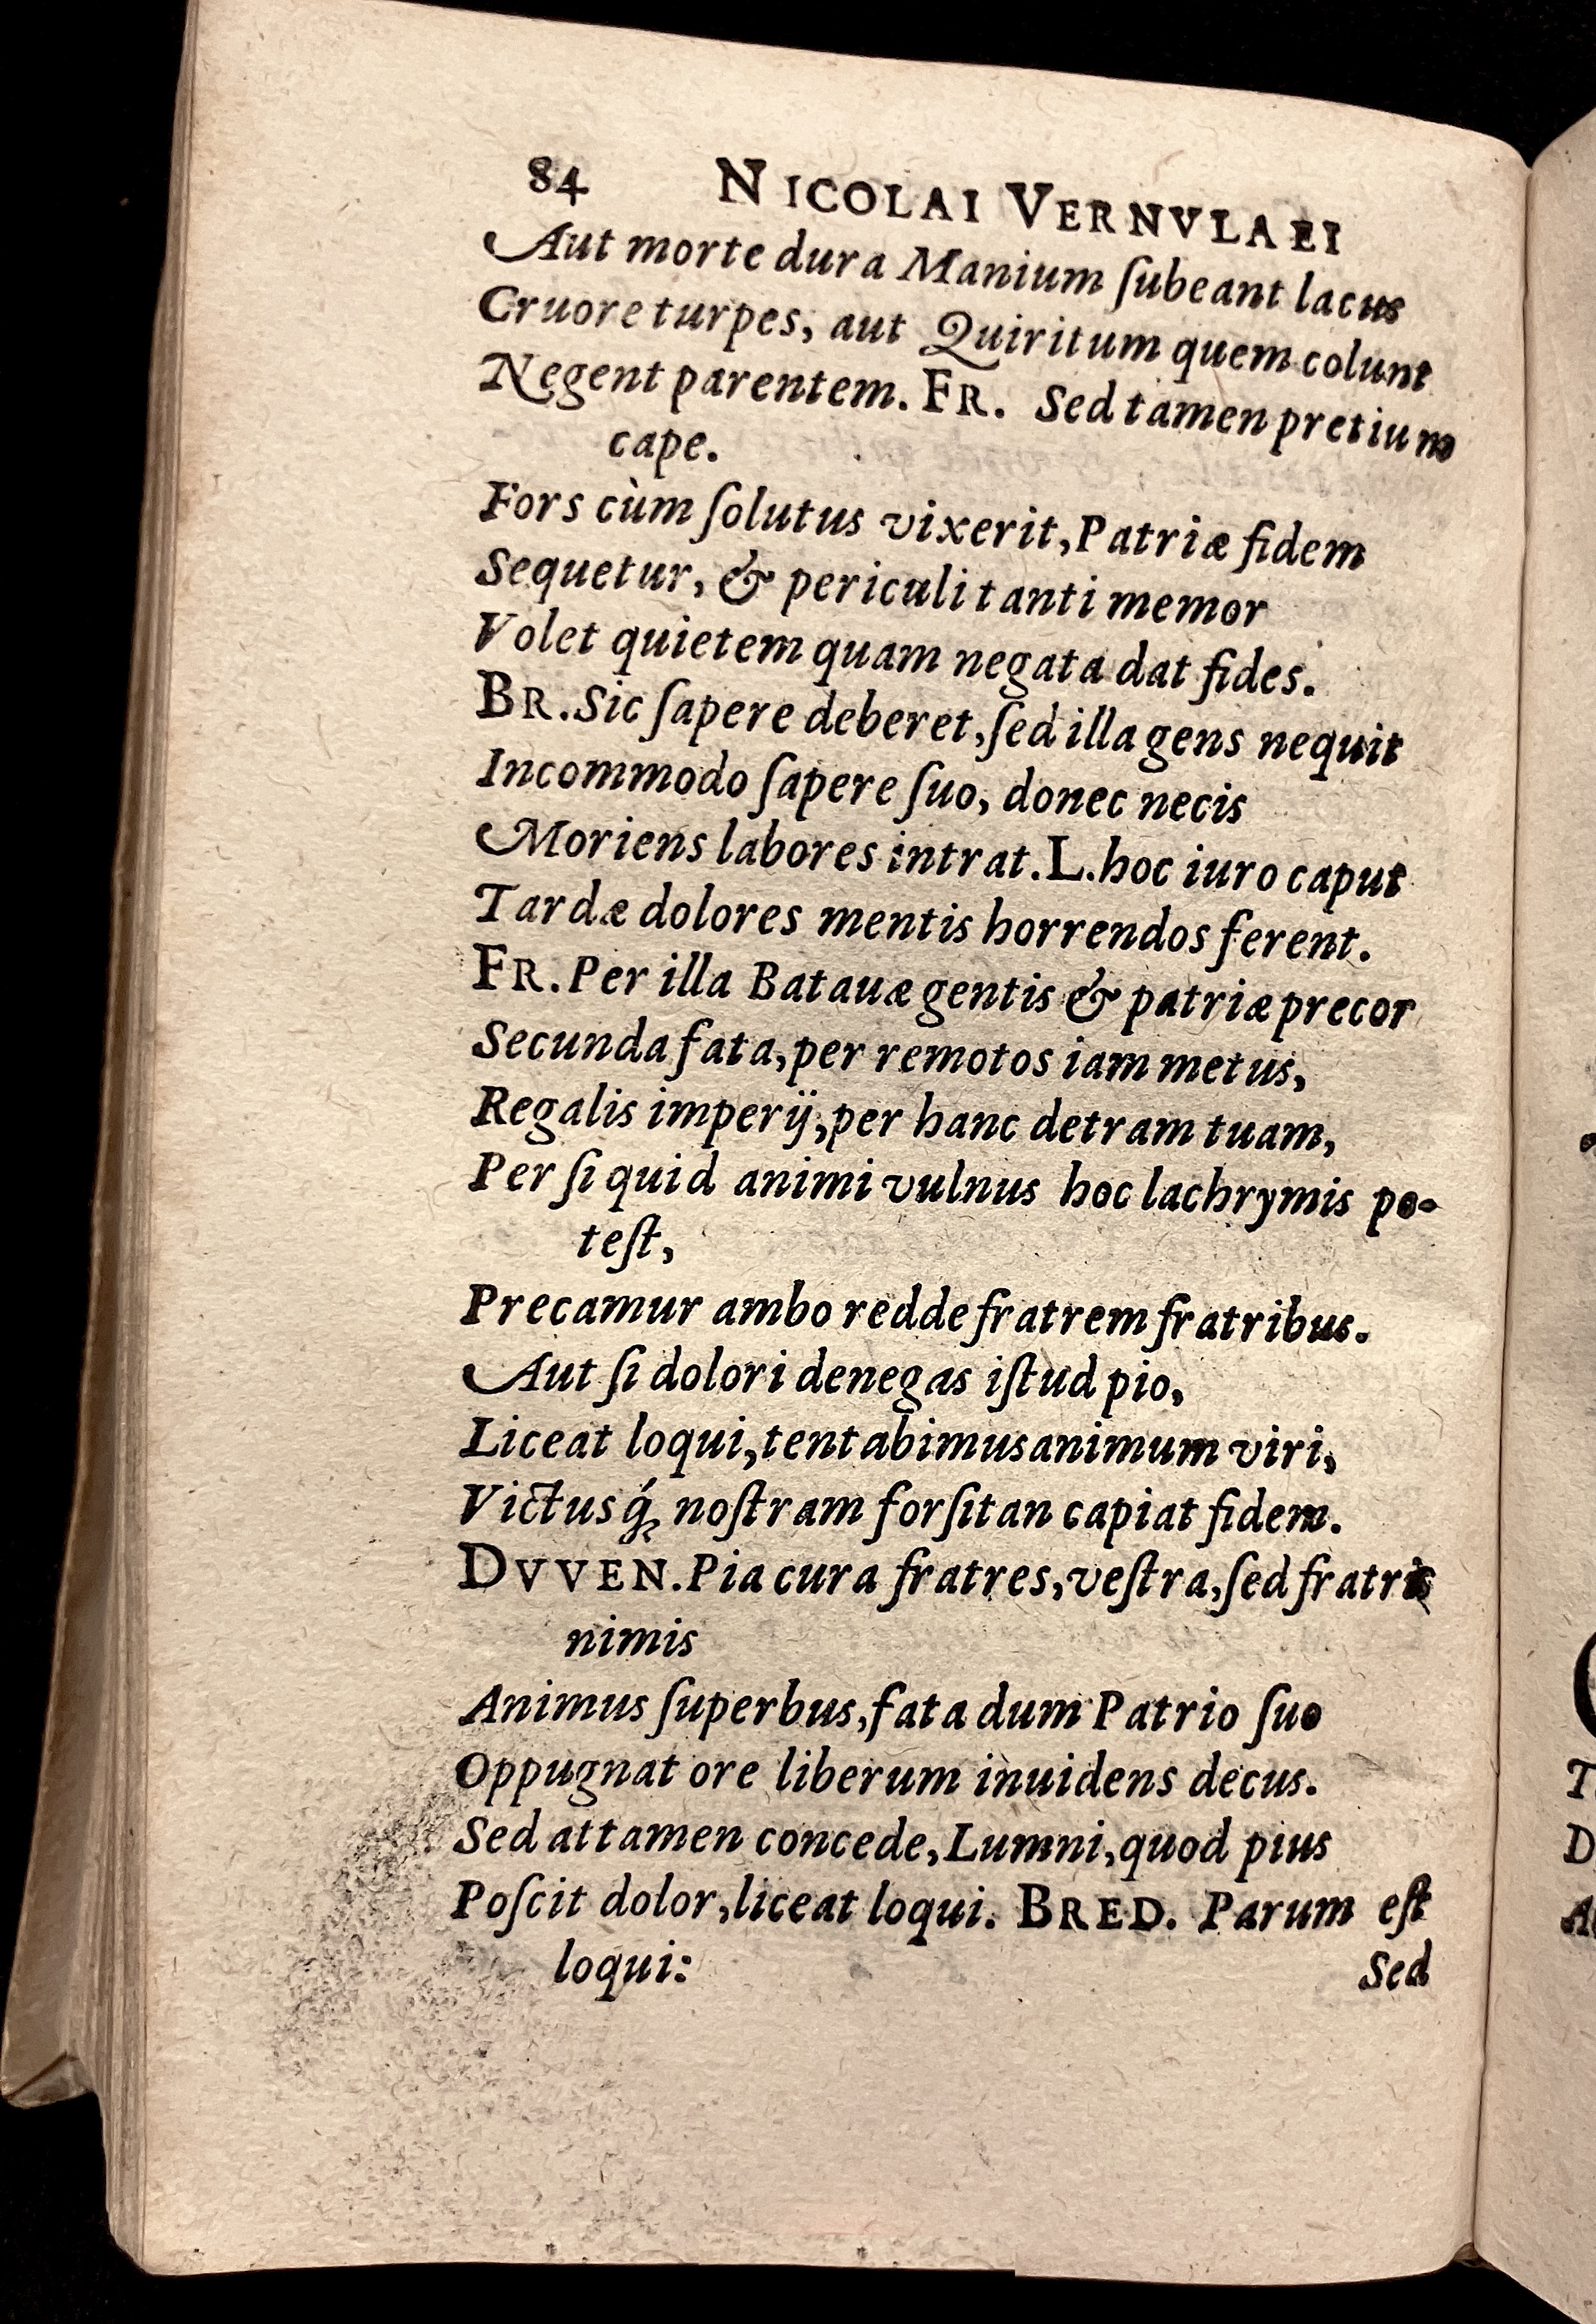 84 NICOLAI VERNVLAEI
Aut morte dura Manium ſubeant lacus
Cruore turpes, aut Quiritum quem colunt
Negent parentem. FR. Sed tamen pretium
cape.
Fors cùm ſolutus vixerit, Patriæ fidem
Sequetur, & periculi tanti memor
Volet quietem quam negata dat fides.
BR. Sic ſapere deberet, ſed illa gens nequit
Incommodo ſapere ſuo, donec necis
Moriens labores intrat. L. hoc iuro caput
Tardæ dolores mentis horrendos ferent.
FR. Per illa Batauæ gentis & patriæ precor
Secunda fata, per remotos iam metus,
Regalis imperij, per hanc detram tuam,
Per ſi quid animi vulnus hoc lachrymis po-
teſt,
Precamur ambo redde fratrem fratribus.
Aut ſi dolori denegas iſtud pio,
Liceat loqui, tentabimus animum viri,
Victusq́; noſtram forſitan capiat fidem.
DVVEN. Pia cura fratres, veſtra, ſed fratris
nimis
Animus ſuperbus, fata dum Patrio ſuo
Oppugnat ore liberum inuidens decus.
Sed attamen concede, Lumni, quod pius
Poſcit dolor, liceat loqui. BRED. Parum eſt
loqui:
Sed
T
D